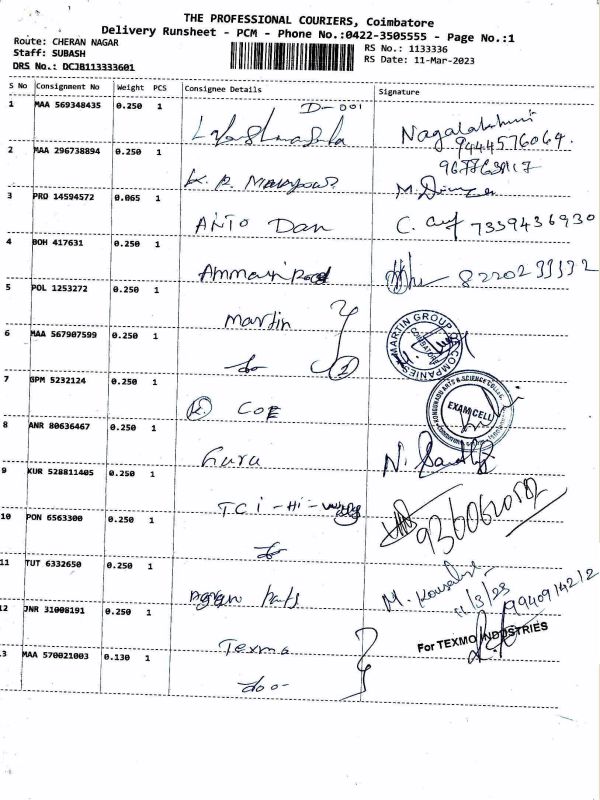 THE PROFESSIONAL COURIERS, Coimbatore
Delivery Runsheet - PCM - Phone No.:0422-3505555 - Page No.:1
Route: CHERAN NAGAR
RS No.: 1133336
Staff: SUBASH
RS Date: 11-Mar-2023
DRS No.: DCJB113333601
S No Consignment No Weight PCS Consignee Details Signature
1 MAA 569348435 0.250 1 D-001
Nagalakshmi
9444576069.
2 MAA 296738894 0.250 1
K.R.
M.
3 PRO 14594572 0.065 1
ANTO Dan C. 7339436930
4 BOH 417631 0.250 1
Ammani
5 POL 1253272 0.250 1
Martin
MARTIN GROUP OF COMPANIES
COIMBATORE
6 MAA 567907599 0.250 1
do
7 GPM 5232124 0.250 1
K COE
KONGUNADU ARTS & SCIENCE COLLEGE
EXAM CELL
8 ANR 80636467 0.250 1
Guru N.
9 KUR 528811405 0.250 1
TCi - Hi -
10 PON 6563300 0.250 1
do
11 TUT 6332650 0.250 1
M.
11/3/23
12 JNR 31008191 0.250 1
Texmo
For TEXMO INDUSTRIES
3 MAA 570021003 0.130 1
do